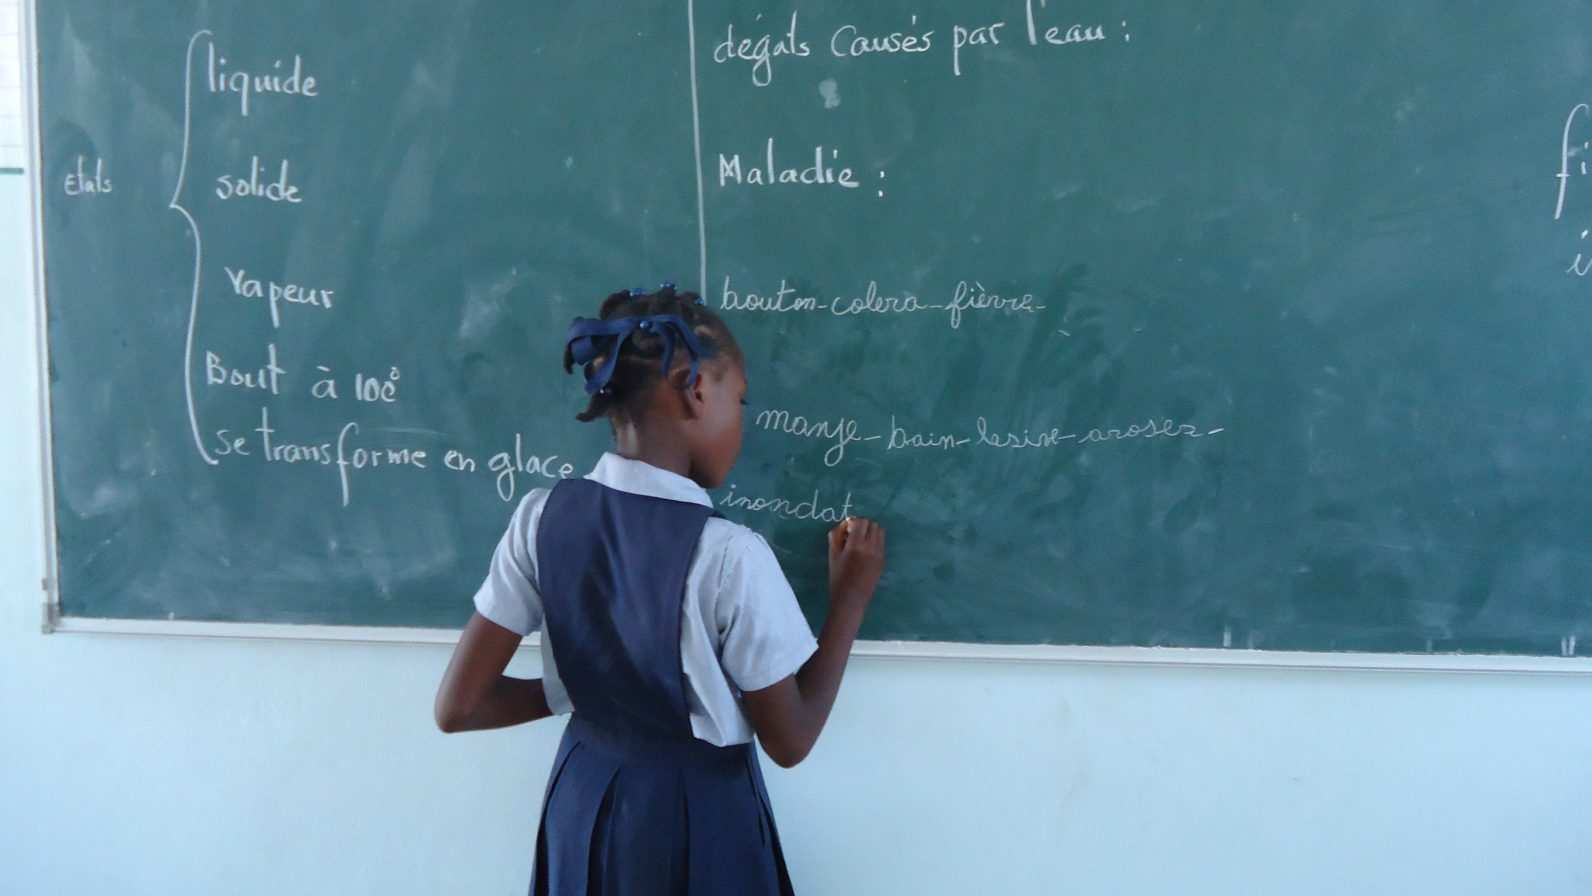 liquide
Etats
solide
vapeur
Bout à 100°
se transforme en glace
dégats causés par l'eau :
Maladie :
bouton - colera - fièvre -
manje - bain - lesive - aroser -
inondat
fi